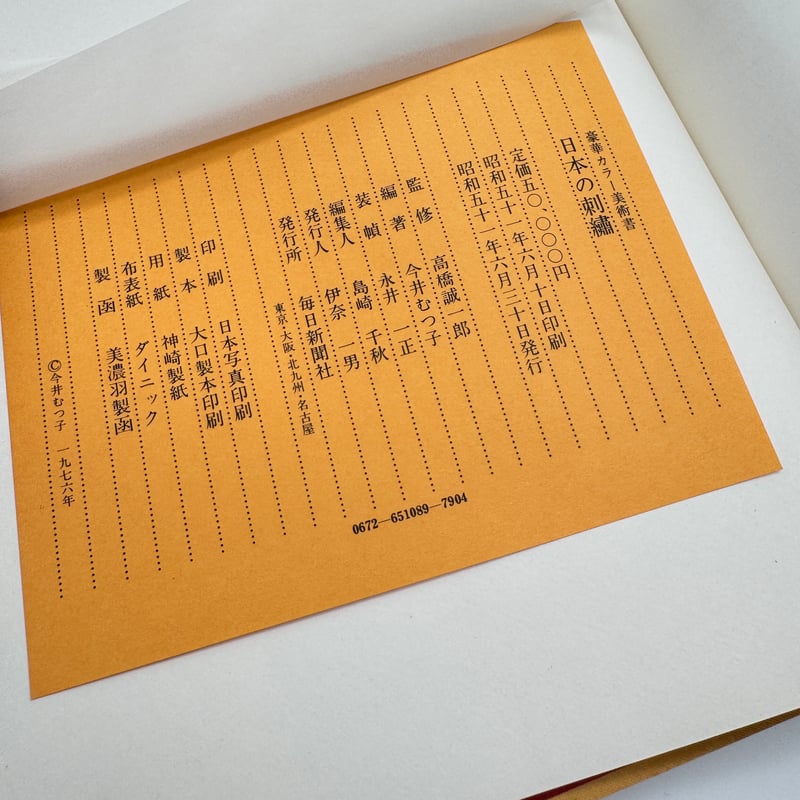 豪華カラー美術書
日本の刺繡
定価五〇、〇〇〇円
昭和五十一年六月十日印刷
昭和五十一年六月三十日発行
監修 高橋誠一郎
編著 今井むつ子
装幀 永井一正
編集人 島崎千秋
発行人 伊奈一男
発行所 毎日新聞社
東京 大阪 北九州 名古屋
印刷 日本写真印刷
製本 大口製本印刷
用紙 神崎製紙
布表紙 ダイニック
製函 美濃羽製函
©今井むつ子 一九七六年
0672—651089—7904